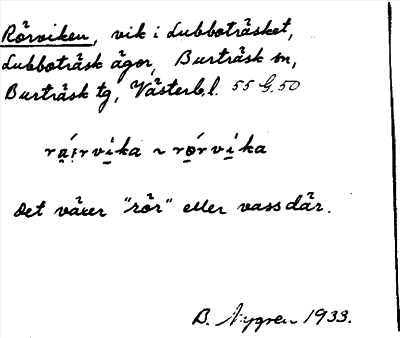 Rörviken, vik i Lubboträsket,
Lubboträsk ägor, Burträsk sn,
Burträsk tg, Västerb.l. 55 G. 50
~
Det växer "rör" eller vass där.
B. Nygren 1933.